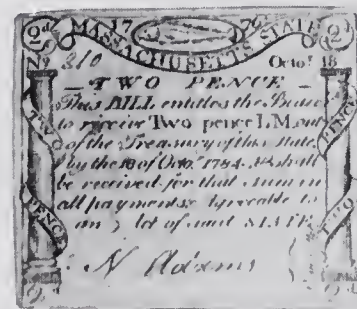 2d. 17 76 2d
MASSACHUSETTS STATE
No 210 Octor. 18
TWO PENCE
This BILL entitles the Bearer
to receive Two pence L.M. out
of the Treasury of this State
by the 18 of Octor. 1784. & shall
be received for that Sum in
all payments agreeable to
an Act of said STATE
N Adams
TWO
PENCE
PENCE
TWO
2d